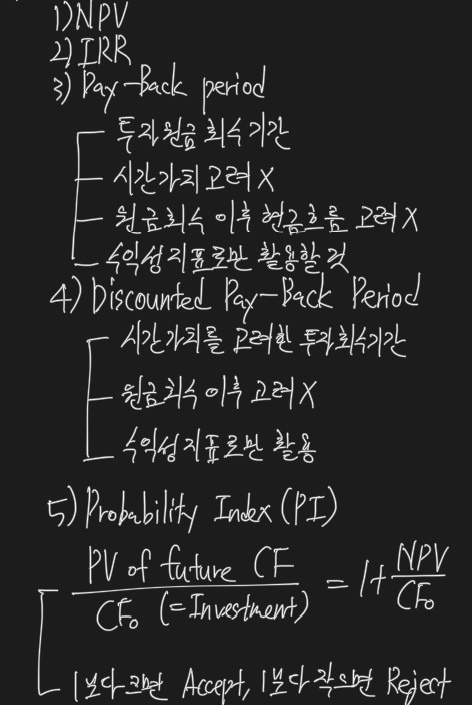 1) NPV
2) IRR
3) Pay-Back period
투자원금 회수기간
시간가치 고려 X
원금회수 이후 현금흐름 고려 X
수익성지표로만 활용할 것
4) Discounted Pay-Back Period
시간가치를 고려한 투자회수기간
원금회수 이후 고려 X
수익성지표로만 활용
5) Probability Index (PI)
PV of future CF / CF₀ (=Investment) = 1+ NPV / CF₀
1보다 크면 Accept, 1보다 작으면 Reject